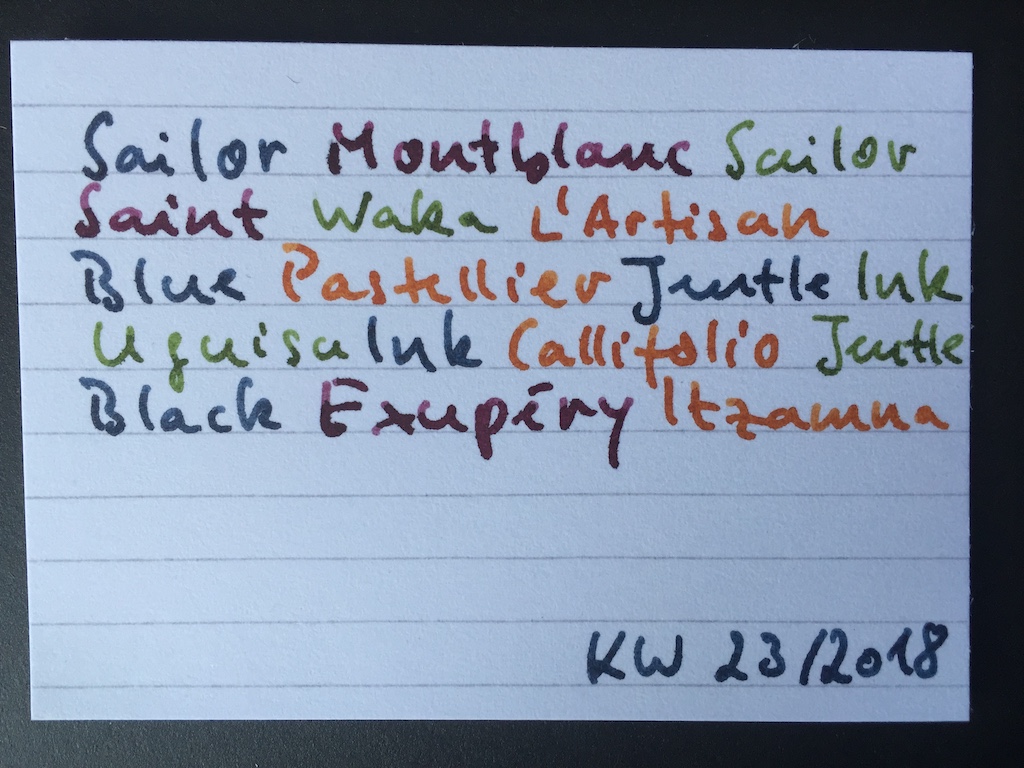 Sailor Montblanc Sailor
Saint Waka L'Artisan
Blue Pastellier Jentle Ink
Uguisu Ink Callifolio Jentle
Black Exupéry Itzamna
KW 23/2018